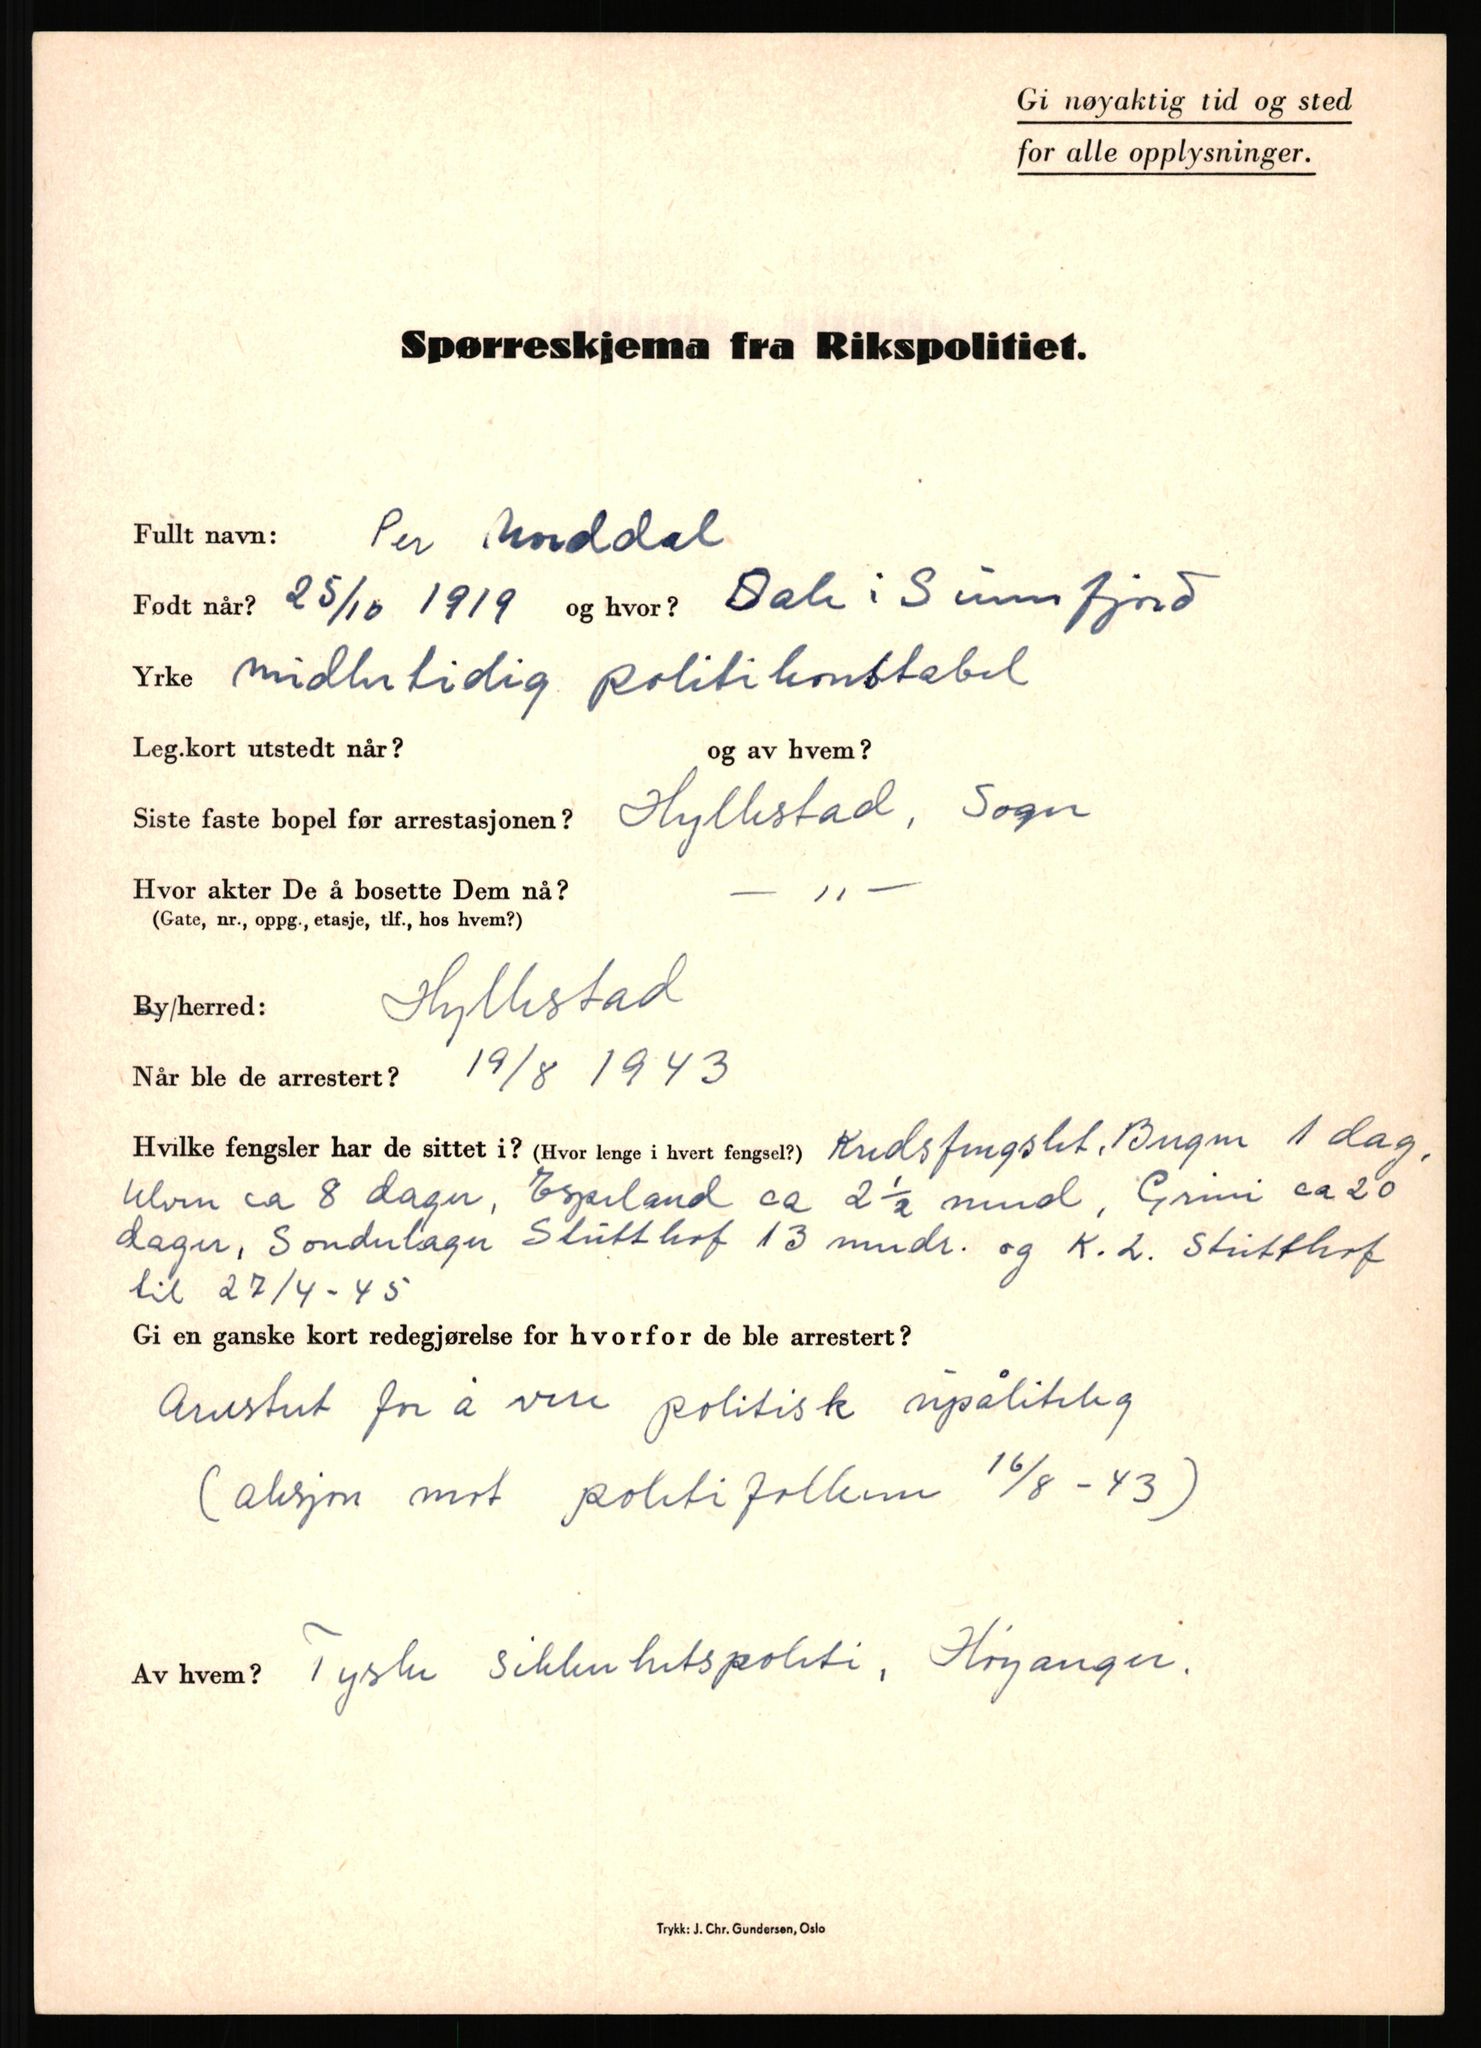 Gi nøyaktig tid og sted
for alle opplysninger.
Spørreskjema fra Rikspolitiet.
Fullt navn: Per
Født når? 25/10 1919 og hvor? Dale i Sunnfjord
Yrke midlertidig politikonstabel
Leg.kort utstedt når? og av hvem?
Siste faste bopel før arrestasjonen? Hyllestad, Sogn
Hvor akter De å bosette Dem nå? — " —
(Gate, nr., oppg., etasje, tlf., hos hvem?)
By/herred: Hyllestad
Når ble de arrestert? 19/8 1943
Hvilke fengsler har de sittet i? (Hvor lenge i hvert fengsel?) Kredsfengslet, Bergen 1 dag,
Ulven ca 8 dager, Espeland ca 2 1/2 mnd, Grini ca 20
dager, Sonderlager Stutthof 13 mndr. og K. L. Stutthof
til 27/4-45
Gi en ganske kort redegjørelse for hvorfor de ble arrestert?
Arrestert for å vere politisk upåliteleg
(aksjon mot politifolkene 16/8-43)
Av hvem? Tyske sikkerhetspoliti, Høyanger.
Trykk: J. Chr. Gundersen, Oslo